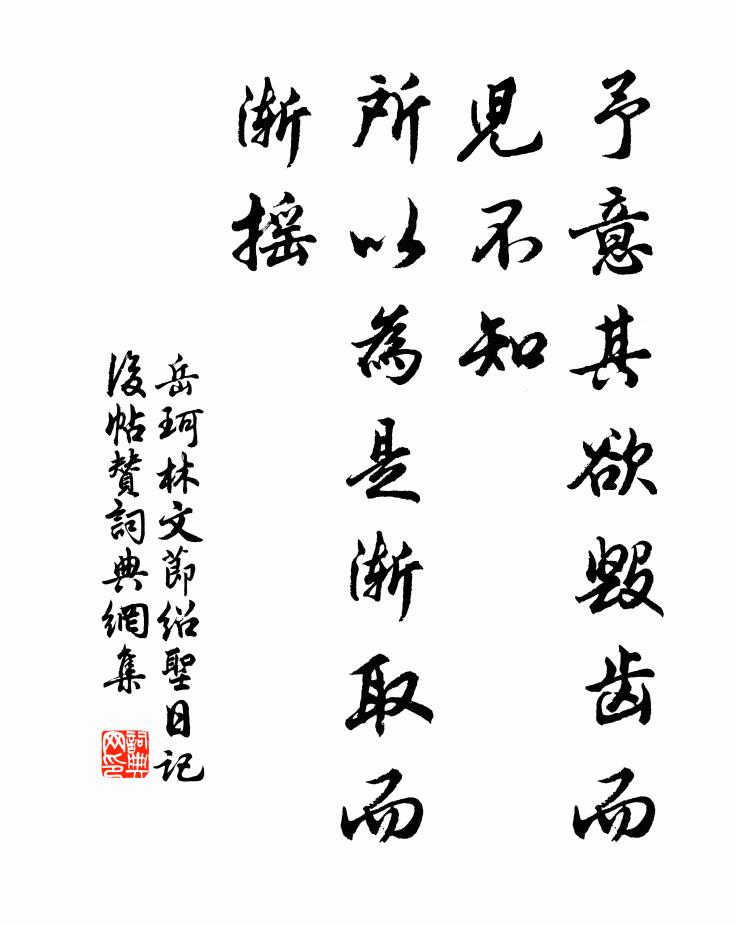 予意其欲毁齿而
児不知
所以為是漸取而
漸摇
岳珂林文節紹聖日記
後帖贊詞典網集
詞典
网印